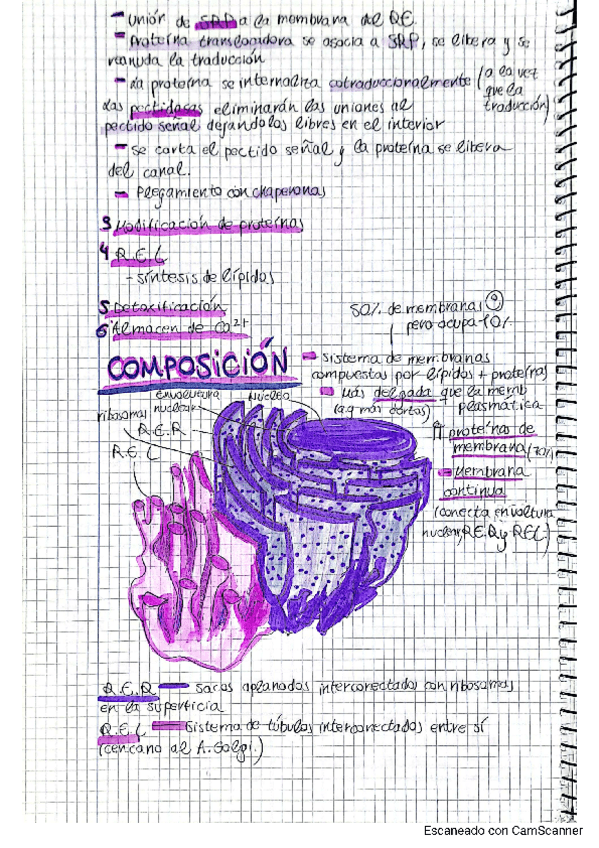 - unión de SRP a la membrana del RE.
- Proteína translocadora se asocia a SRP, se libera y se
reanuda la traducción
- La proteína se internaliza cotraduccionalmente (a la vez
que la
traducción)
Las peptidasas eliminarán las uniones al
peptido señal dejandolos libres en el interior
- se corta el peptido señal y la proteína se libera
del canal.
- Plegamiento con chaperonas
3 Modificación de proteínas
4 R.E.L
- síntesis de lípidos
5 Detoxificación
6 Almacen de Ca2+
50% de membrana
pero ocupa 10%
COMPOSICIÓN
- sistema de membranas
compuestas por lípidos + proteínas
- más delgada que la memb
plasmática
(ag más cortos)
envoltura
nuclear
nucleo
ribosomas
R.E.R
R.E.L
⇈ proteínas de
membrana (70%)
- Membrana
continua
(conecta envoltura
nuclear, R.E.R y REL)
R.E.R - sacos aplanados interconectados con ribosomas
en la superficia
R.E.L - Sistema de túbulos interconectados entre sí
(cercano al A. Golgi.)
Escaneado con CamScanner